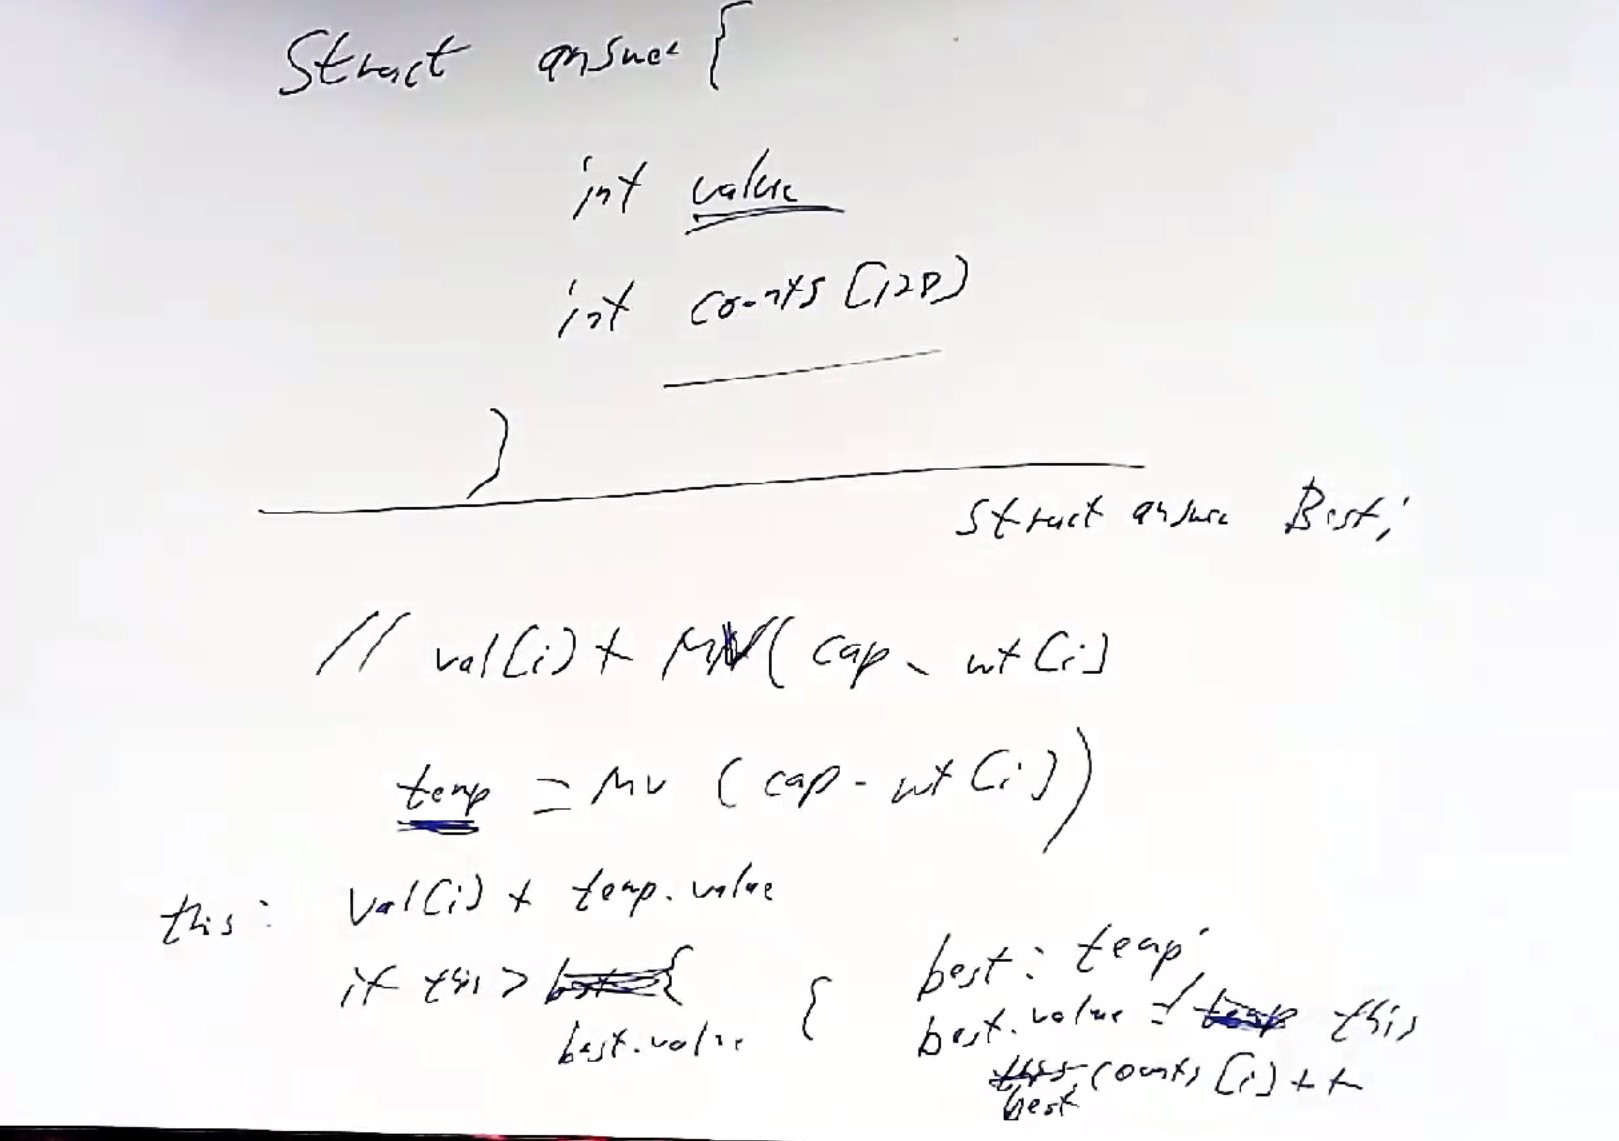 Struct answer {
int value
int counts [128]
}
struct answer Best;
// val[i] + MV( cap - wt[i]
temp = MV ( cap - wt [i] )
this: val[i] + temp.value
if this > best.value {
best = temp;
best.value = this
best.counts [i] ++